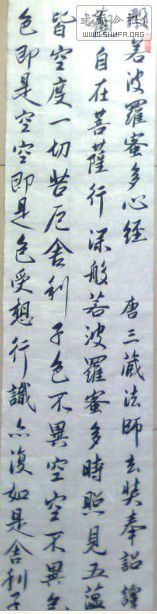 般若波羅蜜多心經 唐三藏法師玄奘奉詔譯
觀自在菩薩行深般若波羅蜜多時照見五蘊
皆空度一切苦厄舍利子色不異空空不異色
色即是空空即是色受想行識亦復如是舍利子
WWW.SHUFA.ORG